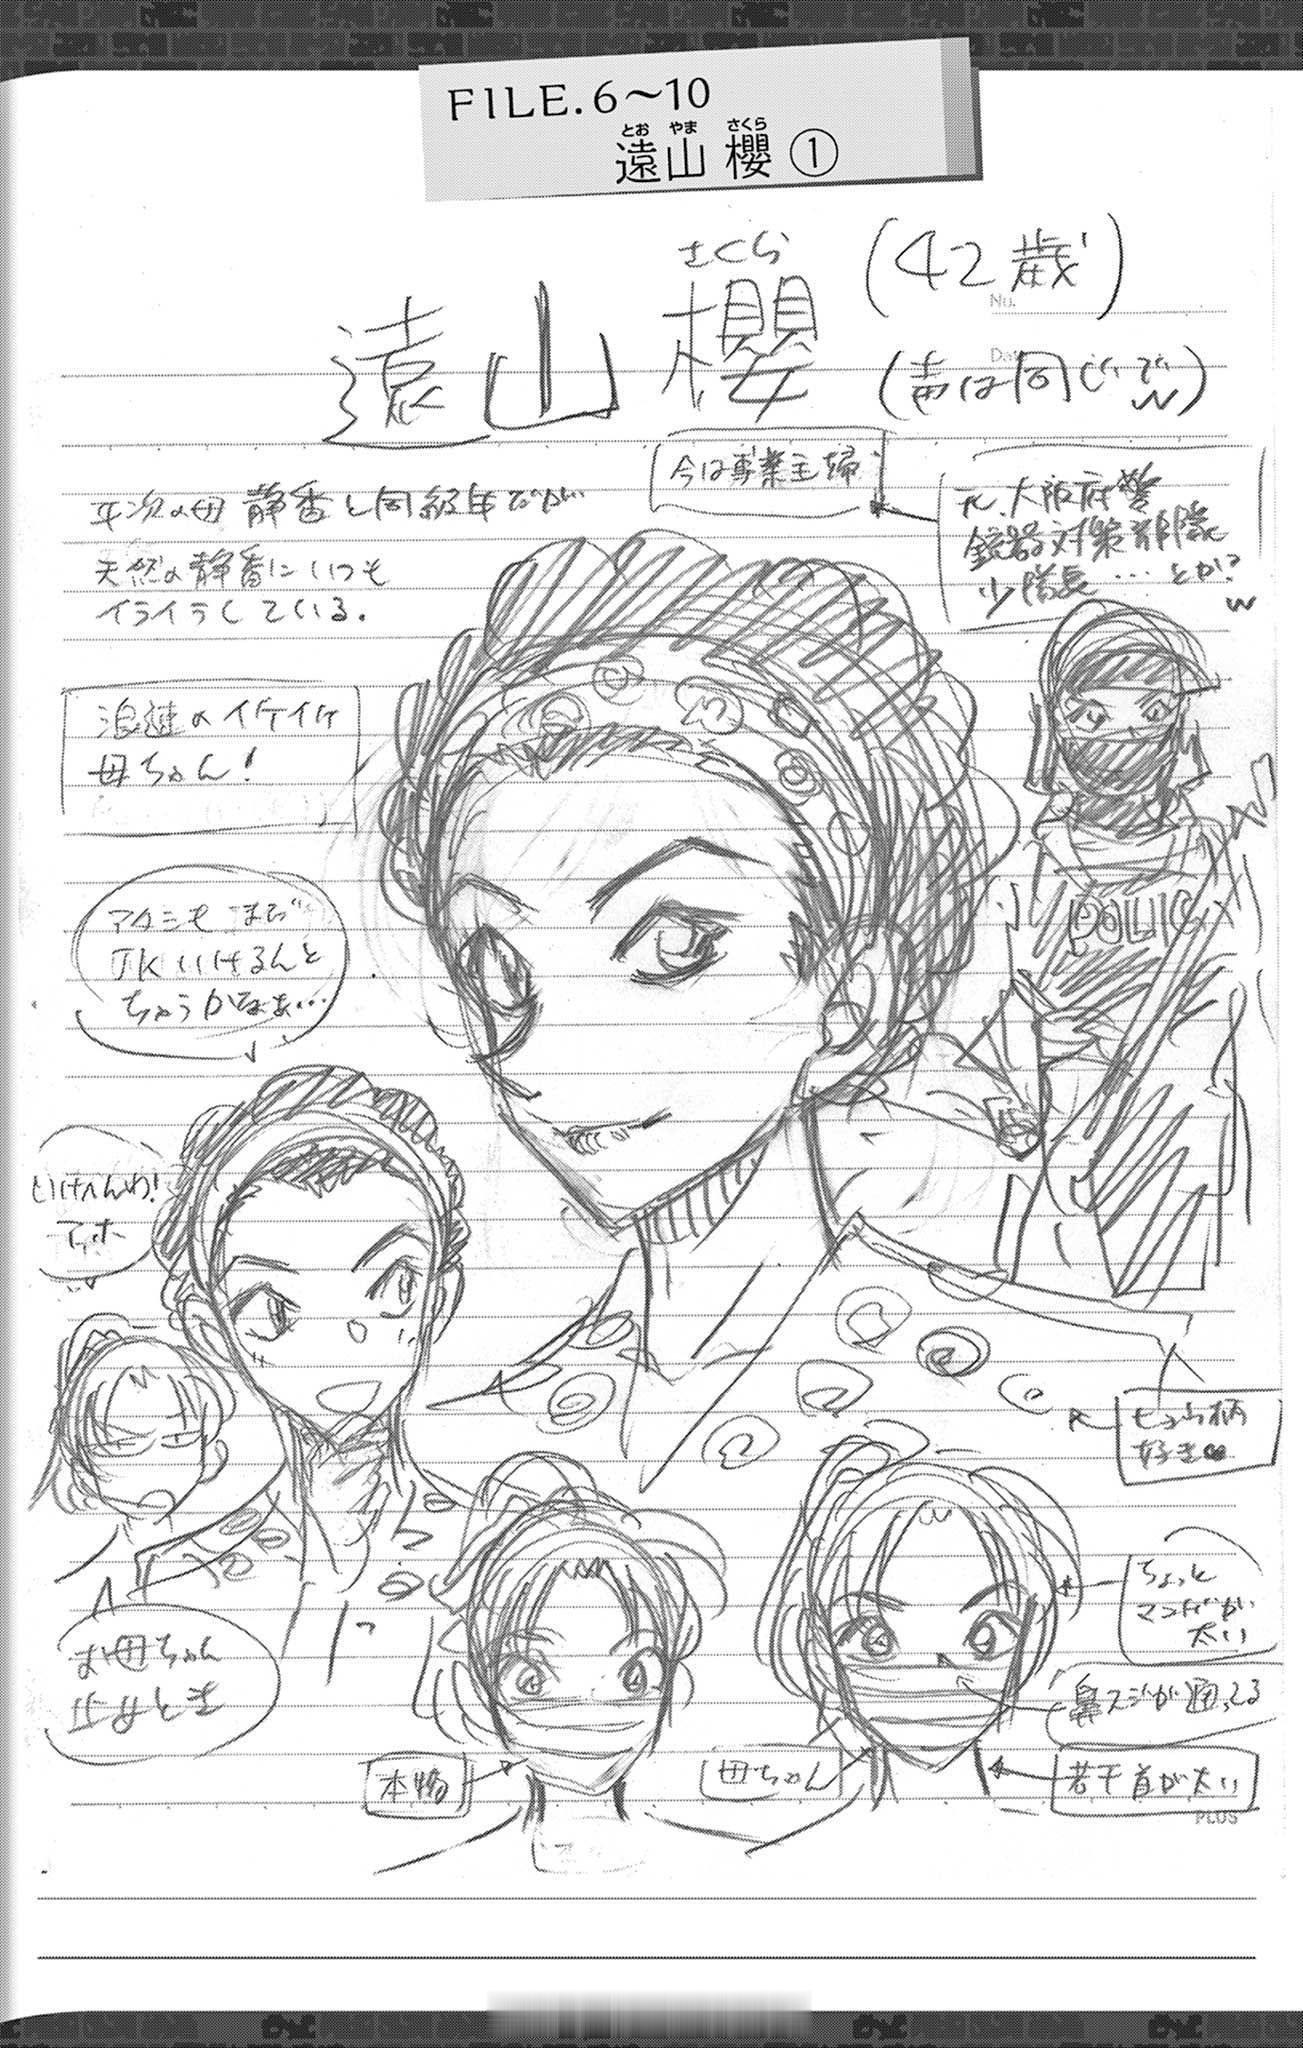 FILE.6～10
とお やま さくら
遠山 櫻 ①
さくら
遠山 櫻
(42歳)
No.
(声は同じでw)
今は専業主婦
元、大阪府警
銃器対策部隊
少隊長…とか?
w
平次の母 静香と同級生だが
天然の静香にいつも
イライラしている.
浪速のイケイケ
母ちゃん!
アタシもまだ
JKいけるんと
ちゃうかなぁ…
POLIC
いけへんわ!
アホ
ヒョウ柄
好き♥
お母ちゃん
止めとき
ちょっと
マユゲが
太い
鼻スジが通ってる
本物
母ちゃん
若干首が太い
PLUS